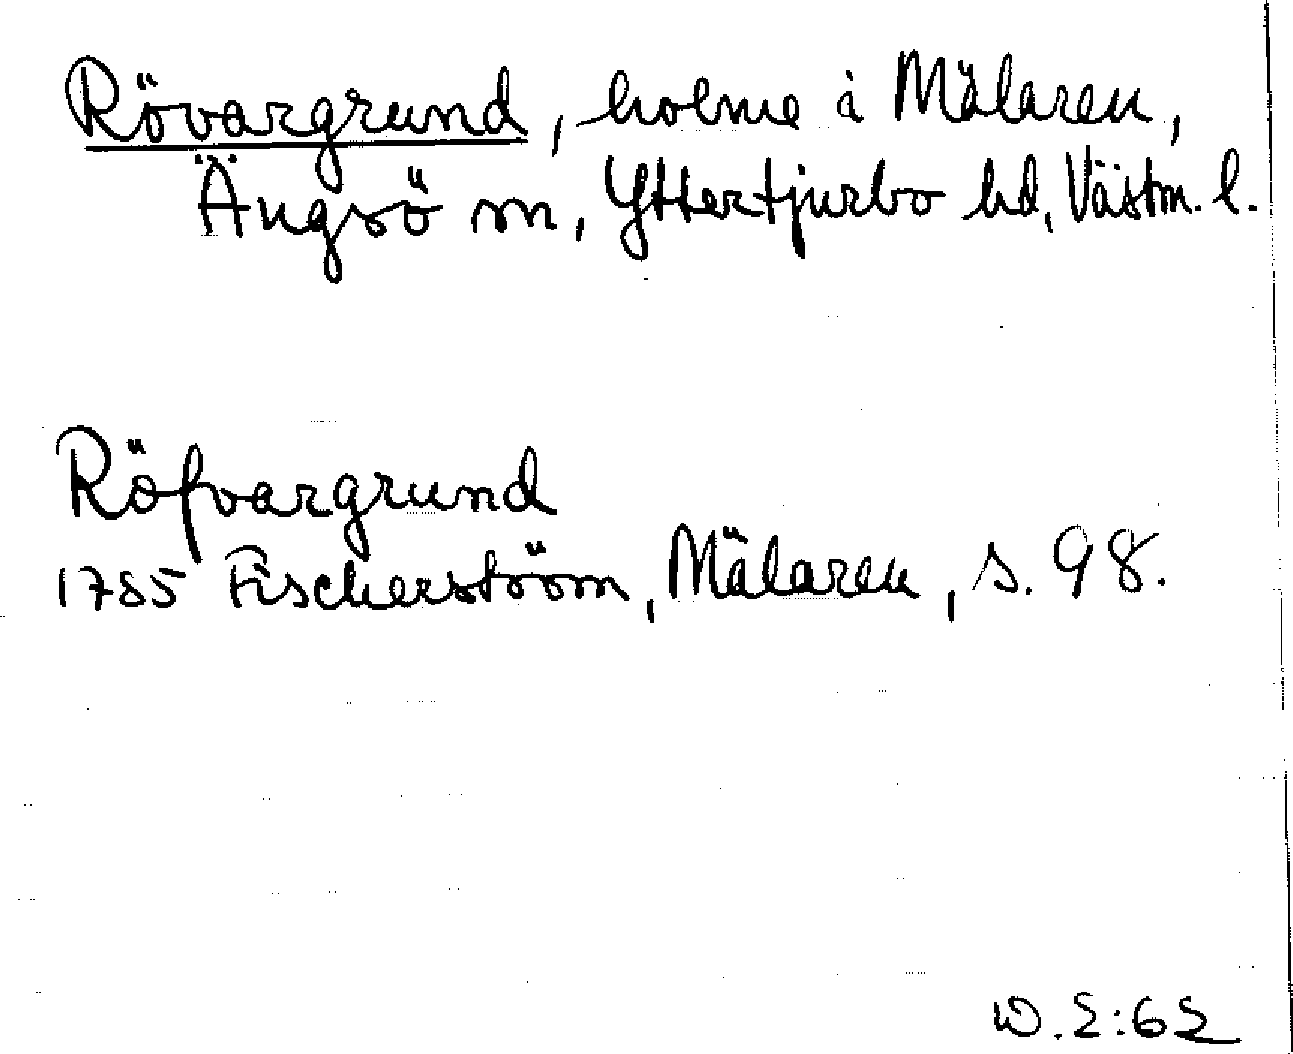 Rövargrund, holme i Mälaren,
Ängsö sn, Yttertjurbo hd, Västm. l.
Röfvargrund
1785 Fischerström, Mälaren, s. 98.
W.E:62